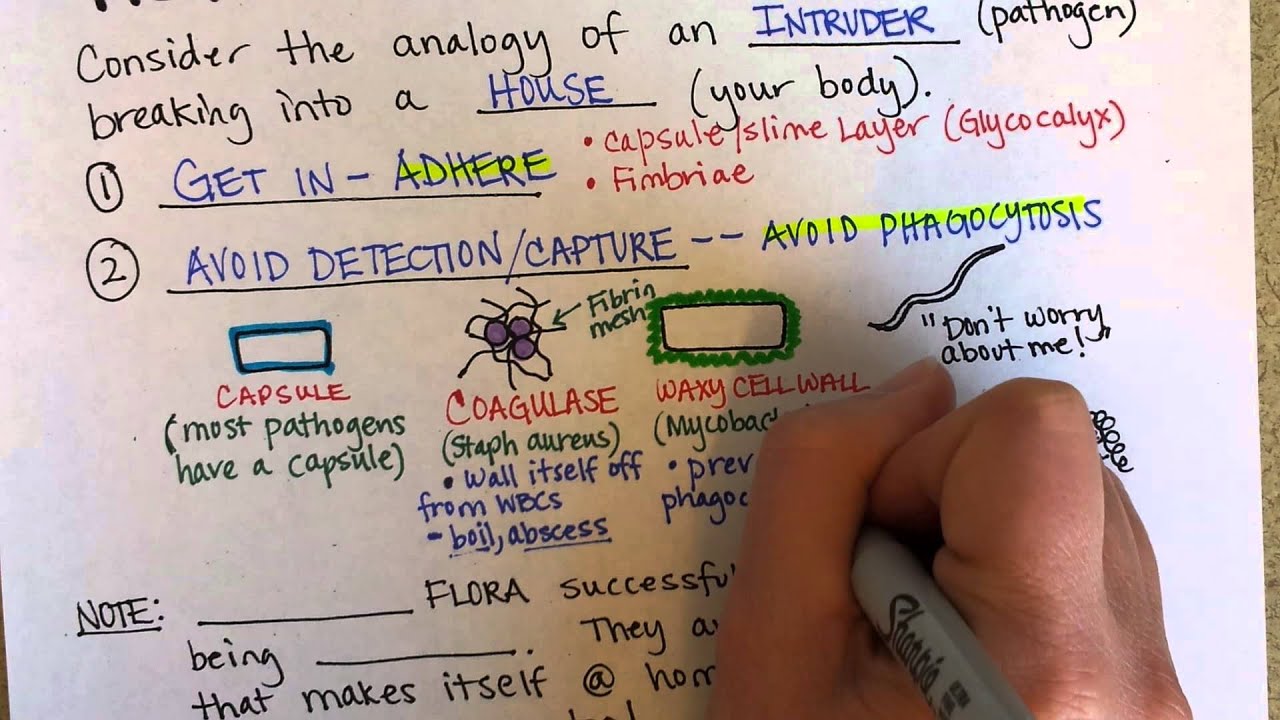 Consider the analogy of an INTRUDER (pathogen)
breaking into a HOUSE (your body).
① GET IN - ADHERE
• capsule/slime Layer (Glycocalyx)
• Fimbriae
② AVOID DETECTION/CAPTURE -- AVOID PHAGOCYTOSIS
CAPSULE
(most pathogens
have a capsule)
Fibrin
mesh
COAGULASE
(Staph aureus)
• wall itself off
from WBCs
- boil, abscess
WAXY CELL WALL
"Don't worry
about me!"
NOTE: FLORA
being . They
that makes itself @
Sharpie